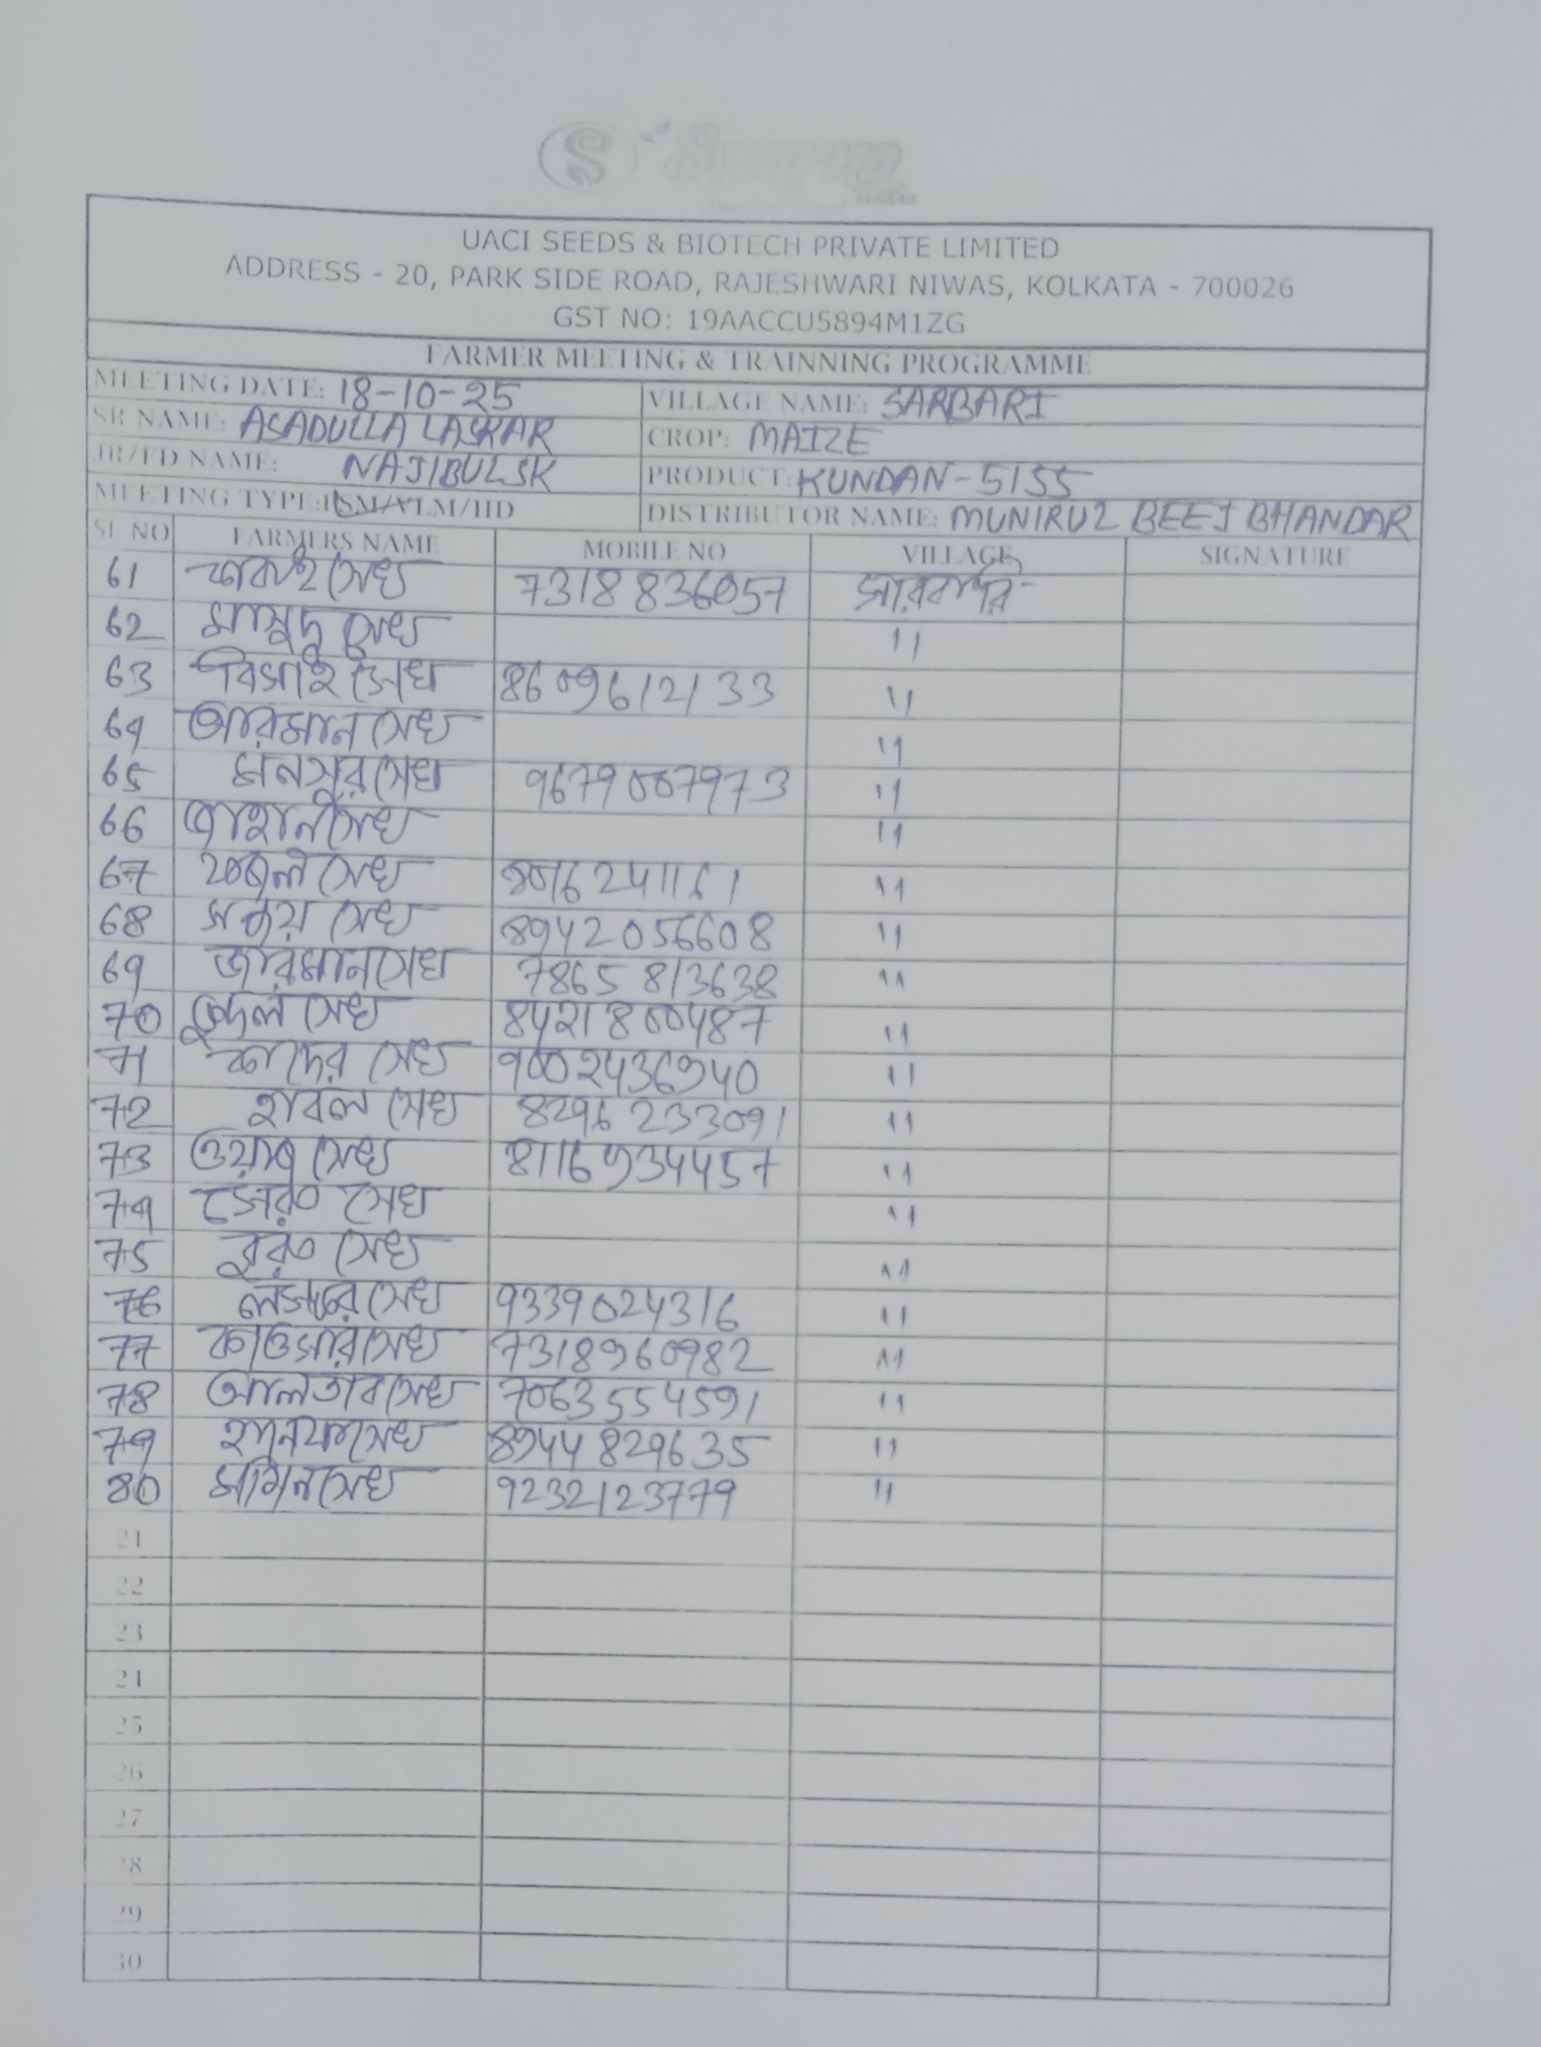 UACI SEEDS & BIOTECH PRIVATE LIMITED
ADDRESS - 20, PARK SIDE ROAD, RAJESHWARI NIWAS, KOLKATA - 700026
GST NO: 19AACCU5894M1ZG
FARMER MEETING & TRAINNING PROGRAMME
MEETING DATE: 18-10-25 VILLAGE NAME: SARBARI
SR NAME: ASADULLA LASKAR CROP: MAIZE
JR/FD NAME: NAJIBUL SK PRODUCT: KUNDAN-5155
MEETING TYPE: DISTRIBUTOR NAME: MUNIRUL BEEJ BHANDAR
SL NO FARMERS NAME MOBILE NO VILLAGE SIGNATURE
61 সেখ 7318836057
62 সেখ 11
63 সেখ 8609612133 11
64 আরমান সেখ 11
65 মনসুর সেখ 9679007973 11
66 জাহান সেখ 11
67 ফজলে সেখ 8016241161 11
68 সেখ 8942056608 11
69 আরমান সেখ 7865813638 11
70 সেখ 8421800487 11
71 কাদের সেখ 9002436940 11
72 হাবল সেখ 8296233091 11
73 সেখ 8116934457 11
74 সেখ 11
75 সেখ 11
76 লস্কর সেখ 9339024316 11
77 কাওসার সেখ 7318960982 11
78 আলতাব সেখ 7063554591 11
79 সেখ 8944829635 11
80 মমিন সেখ 9232123779 11
21
22
23
24
25
26
27
28
29
30